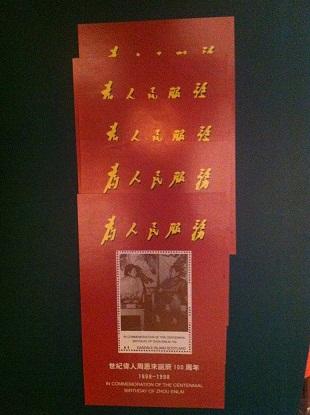 为人民服務
为人民服務
为人民服務
为人民服務
IN COMMEMORATION OF THE CENTENNIAL
BIRTHDAY OF ZHOU ENLAI
世紀偉人周恩來誕辰100周年
1898-1998
IN COMMEMORATION OF THE CENTENNIAL
BIRTHDAY OF ZHOU ENLAI